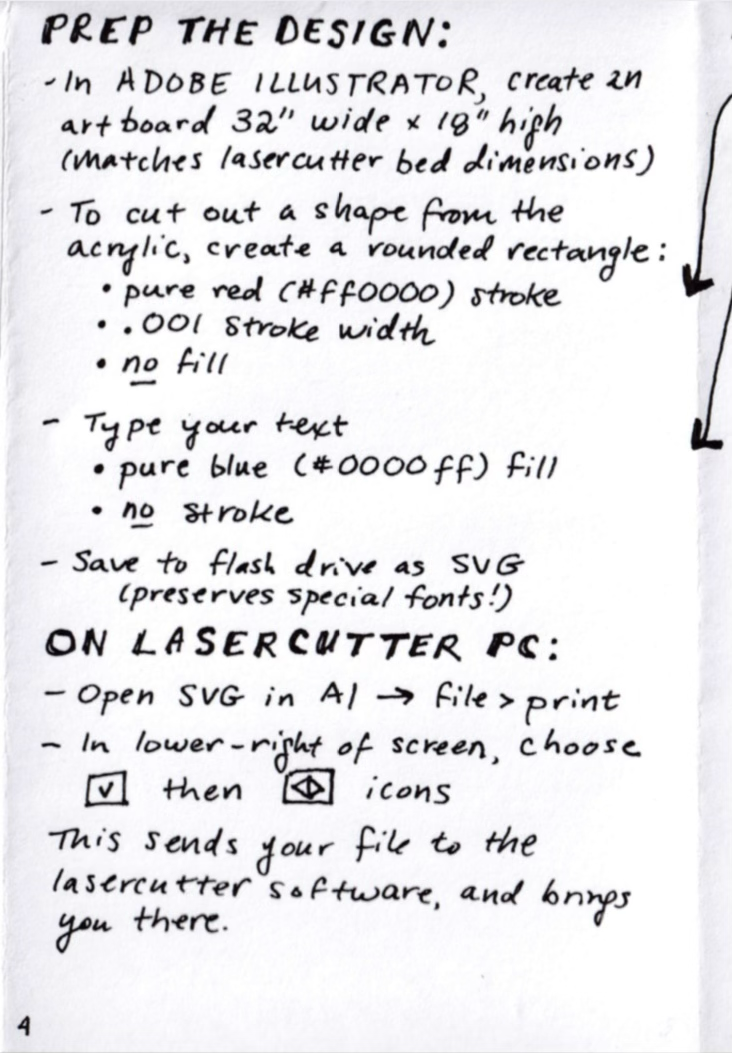 PREP THE DESIGN:
- In ADOBE ILLUSTRATOR, create an
art board 32" wide x 18" high
(matches lasercutter bed dimensions)
- To cut out a shape from the
acrylic, create a rounded rectangle:
• pure red (#ff0000) stroke
• .001 stroke width
• no fill
- Type your text
• pure blue (#0000ff) fill
• no stroke
- Save to flash drive as SVG
(preserves special fonts!)
ON LASERCUTTER PC:
- Open SVG in AI → file > print
- In lower-right of screen, choose
[v] then [◁▷] icons
This sends your file to the
lasercutter software, and brings
you there.
4